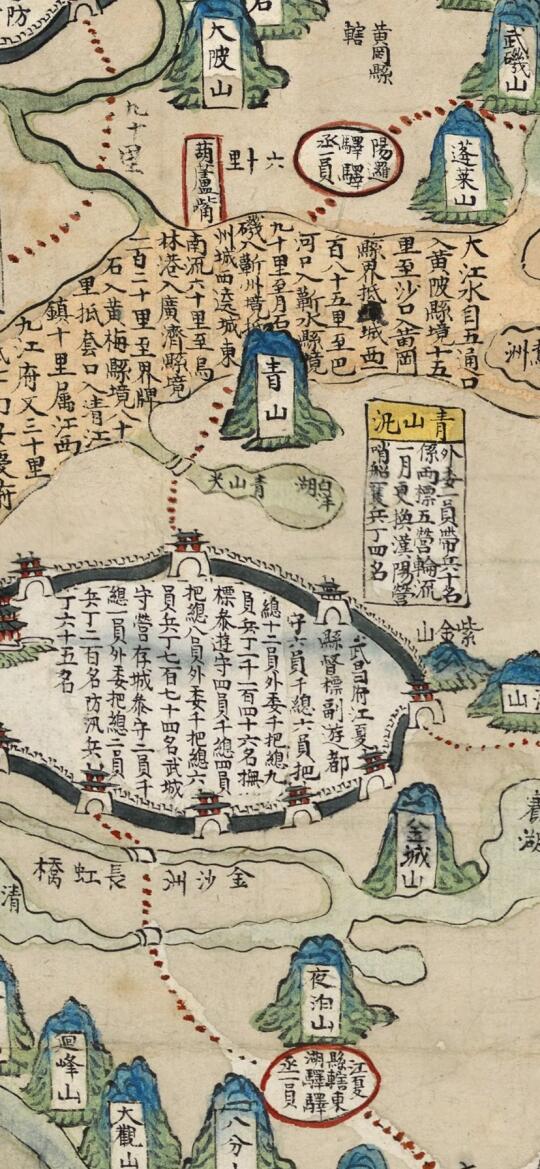 防
大陂山
石
黄岡縣
轄
武磯山
九十里
葫蘆嘴
六十里
陽羅
驛驛
丞一員
蓬萊山
大江水自五通口
入黄陂縣境十五
里至沙口入黄岡
縣界抵城西
百八十五里至巴
河口入蘄水縣境
九十里至月石
磯入蘄州境
州城西遶城東
南流六十里至烏
林港入廣濟縣境
二百二十里至界牌
石入黄梅縣境八十
里抵套口入清江
鎮十里属江西
九江府又三十里
洲
青山
青山汛
外委一員帶兵十名
係兩標五營輪流
一月更換漢陽營
哨船隻兵丁四名
青山夾
白洋湖
紫金山
武昌府江夏
縣督標副遊都
守六員千總六員把
總十二員外委千把總九
員兵丁二千一百四十六名撫
標叅遊守四員千總四員
把總八員外委千把總六
員兵丁七百七十四名武城
守營存城叅守二員千
總一員外委把總二員
兵丁二百名防汛兵
丁六十五名
山
金城山
湖
長虹橋
金沙洲
清
夜泊山
江夏
縣轄東
湖驛驛
丞一員
迴峰山
大觀山
八分